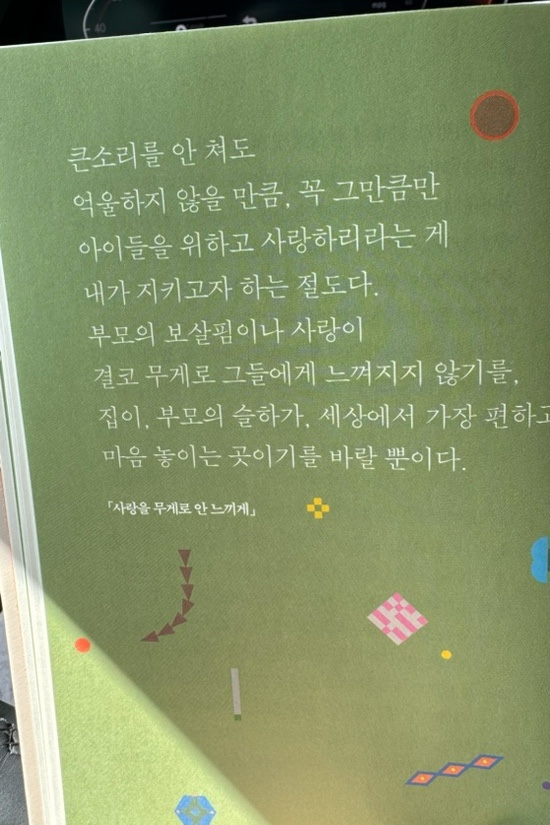 큰소리를 안 쳐도
억울하지 않을 만큼, 꼭 그만큼만
아이들을 위하고 사랑하리라는 게
내가 지키고자 하는 절도다.
부모의 보살핌이나 사랑이
결코 무게로 그들에게 느껴지지 않기를,
집이, 부모의 슬하가, 세상에서 가장 편하고
마음 놓이는 곳이기를 바랄 뿐이다.
「사랑을 무게로 안 느끼게」